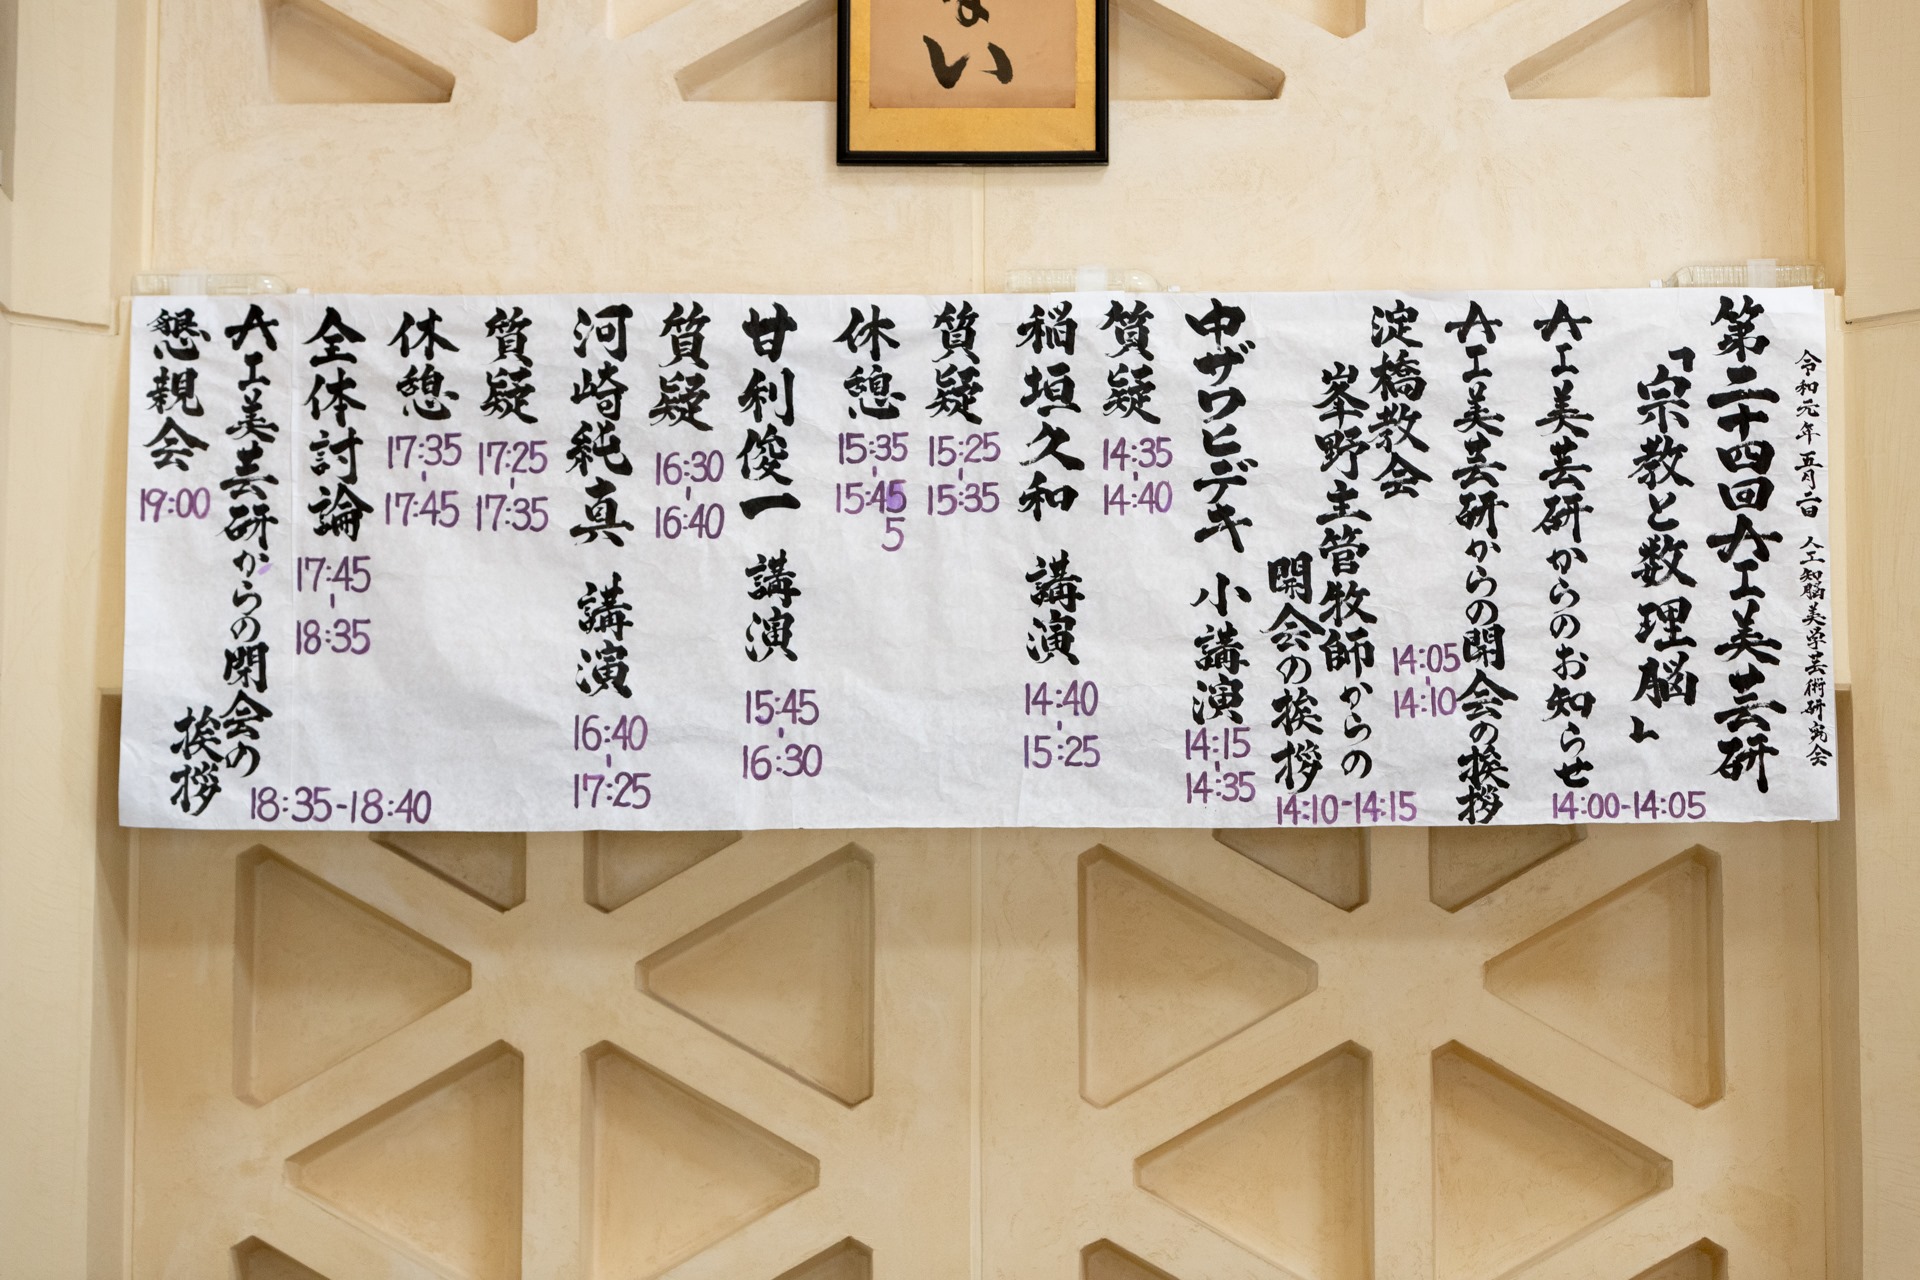 令和元年五月二日 人工知能美学芸術研究会
第二十四回AI美芸研
「宗教と数理脳」
AI美芸研からのお知らせ
14:00-14:05
AI美芸研からの開会の挨拶
14:05
-
14:10
淀橋教会
峯野主管牧師からの
開会の挨拶
14:10-14:15
中ザワヒデキ 小講演
14:15
-
14:35
質疑
14:35
-
14:40
稲垣久和 講演
14:40
-
15:25
質疑
15:25
-
15:35
休憩
15:35
-
15:45
5
甘利俊一 講演
15:45
-
16:30
質疑
16:30
-
16:40
河崎純真 講演
16:40
-
17:25
質疑
17:25
-
17:35
休憩
17:35
-
17:45
全体討論
17:45
-
18:35
AI美芸研からの閉会の
挨拶
18:35-18:40
懇親会
19:00